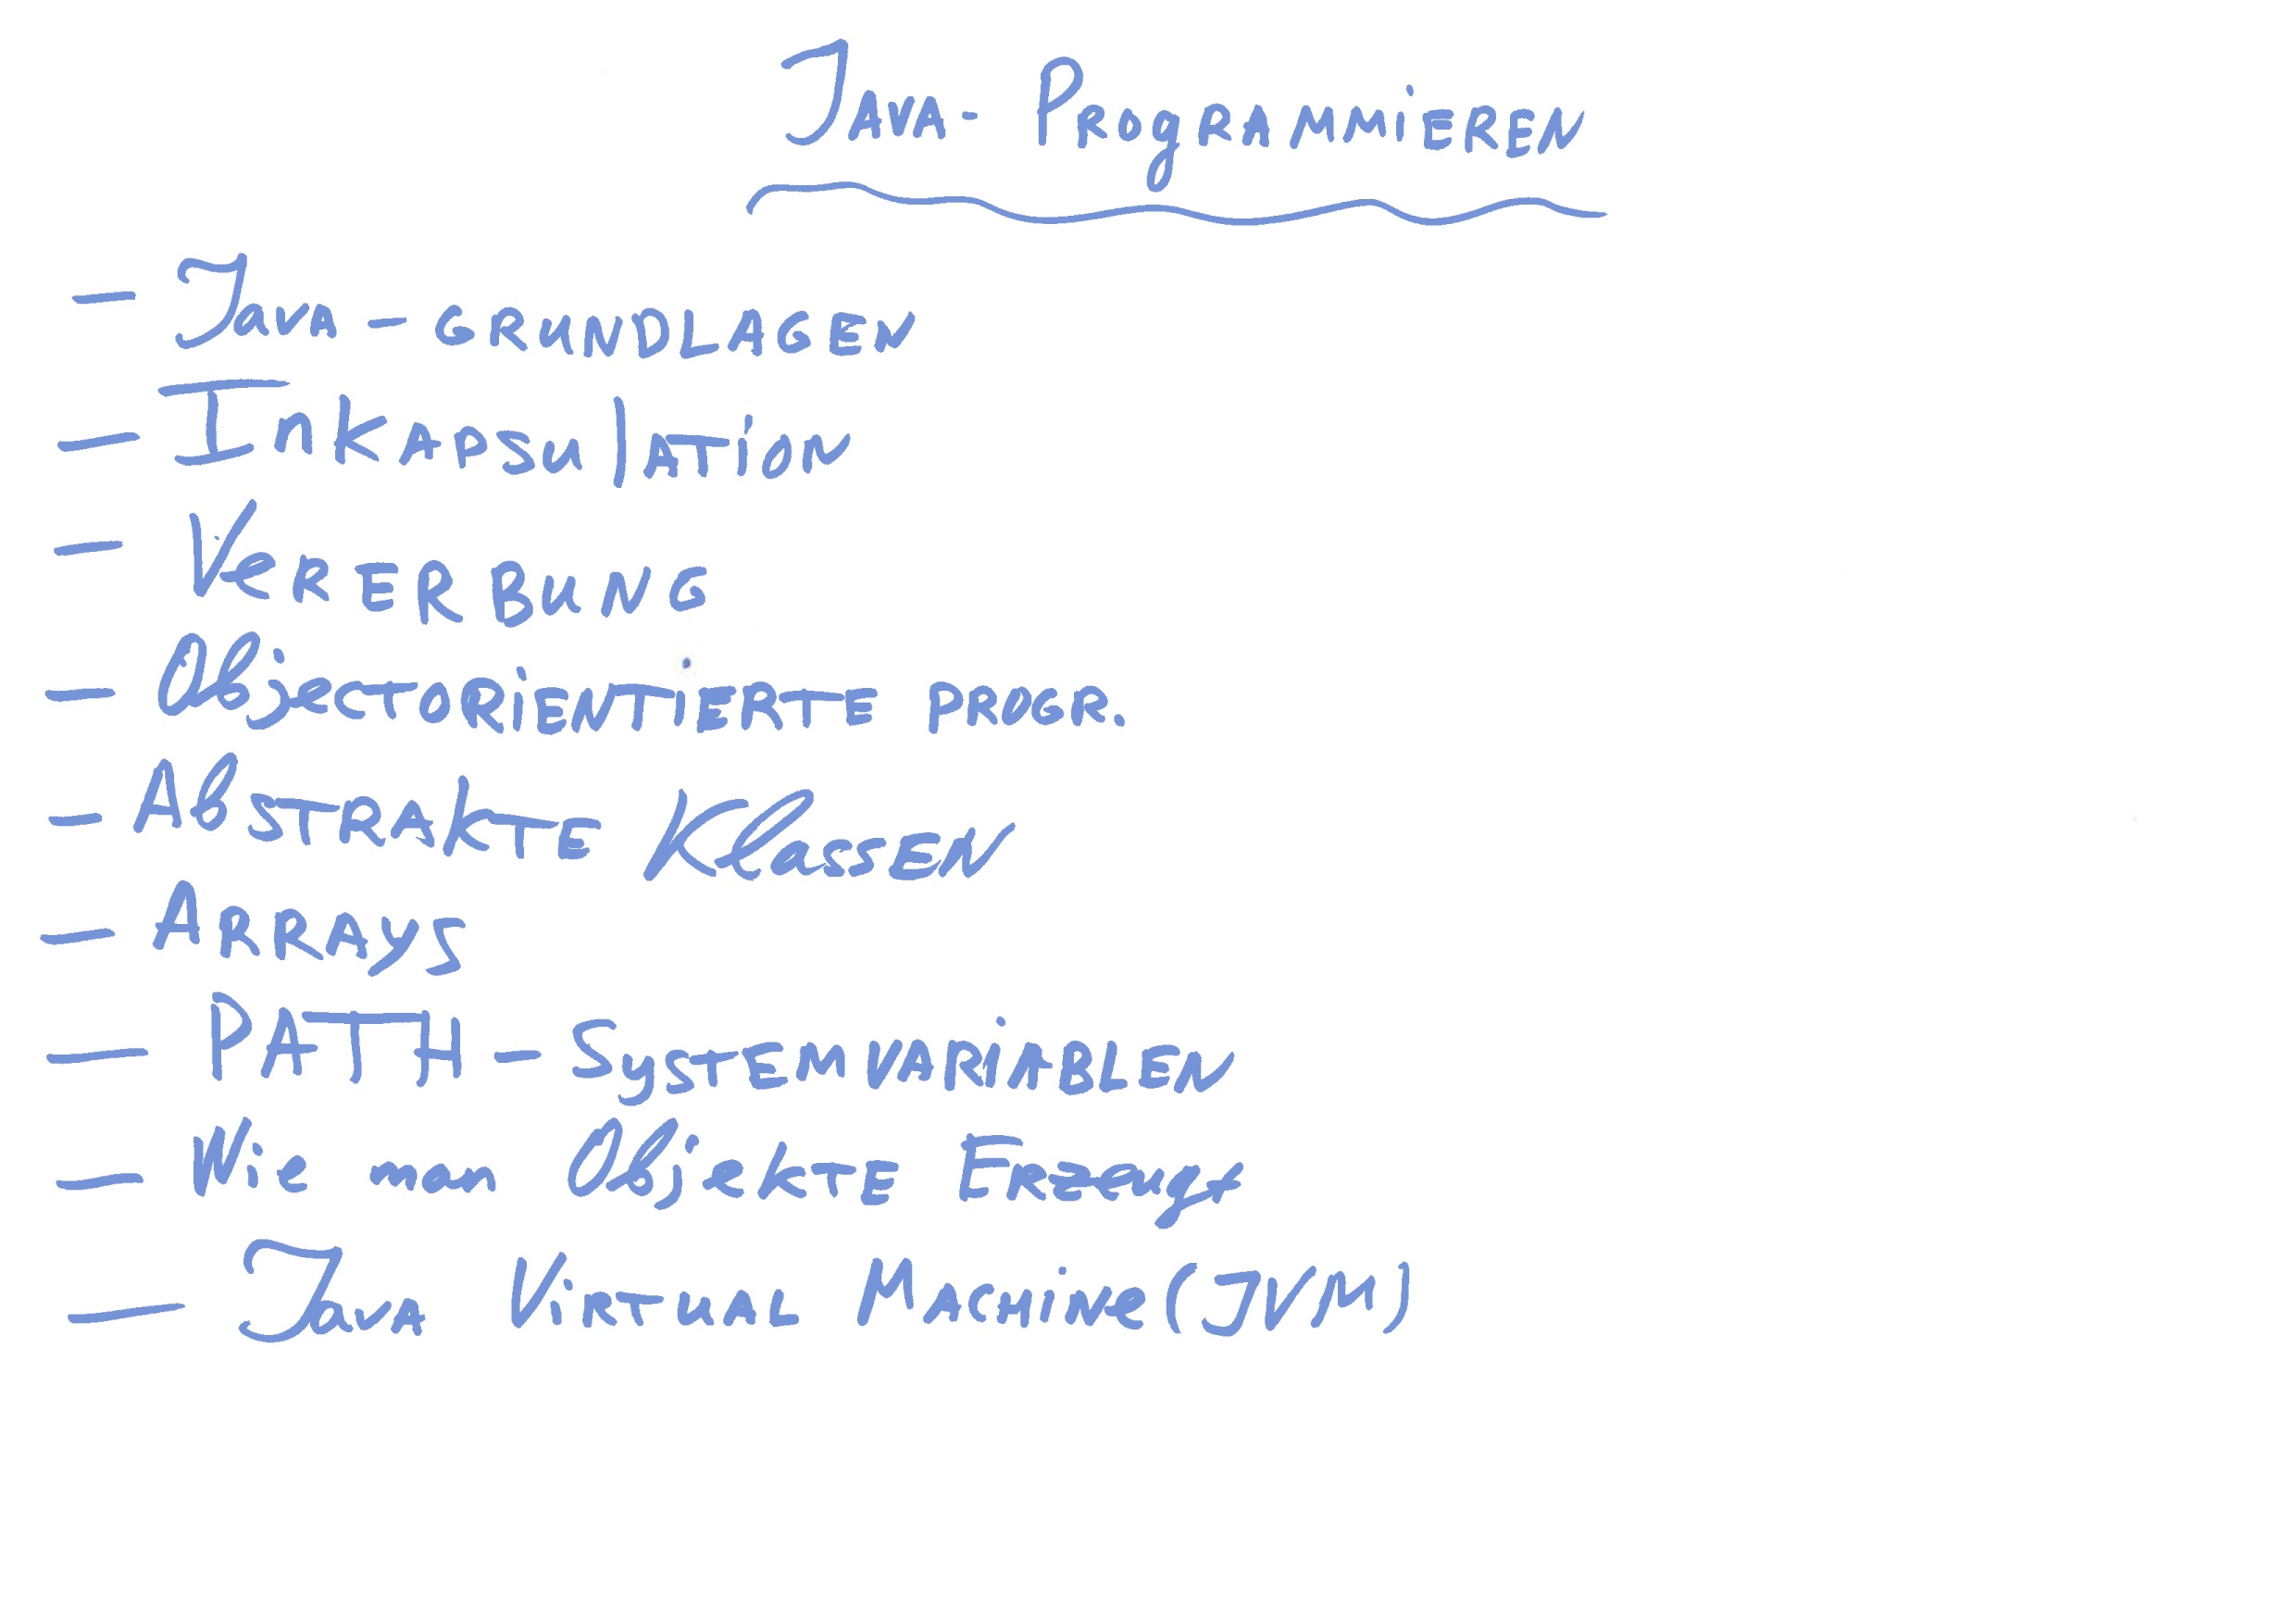 Java-Programmieren
- Java-grundlagen
- Inkapsulation
- Vererbung
- Objectorientierte progr.
- Abstrakte Klassen
- Arrays
- PATH-Systemvariablen
- Wie man Objekte Erzeugt
- Java Virtual Machine (JVM)